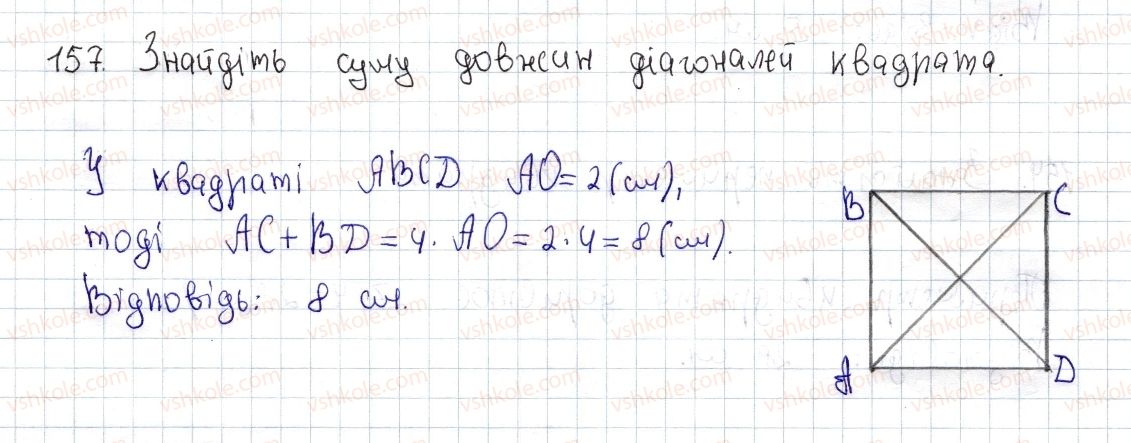 157. Знайдіть суму довжин діагоналей квадрата.
У квадраті ABCD AO = 2 (см),
тоді AC + BD = 4 · AO = 2 · 4 = 8 (см).
Відповідь: 8 см.
B C
A D
vshkole.com